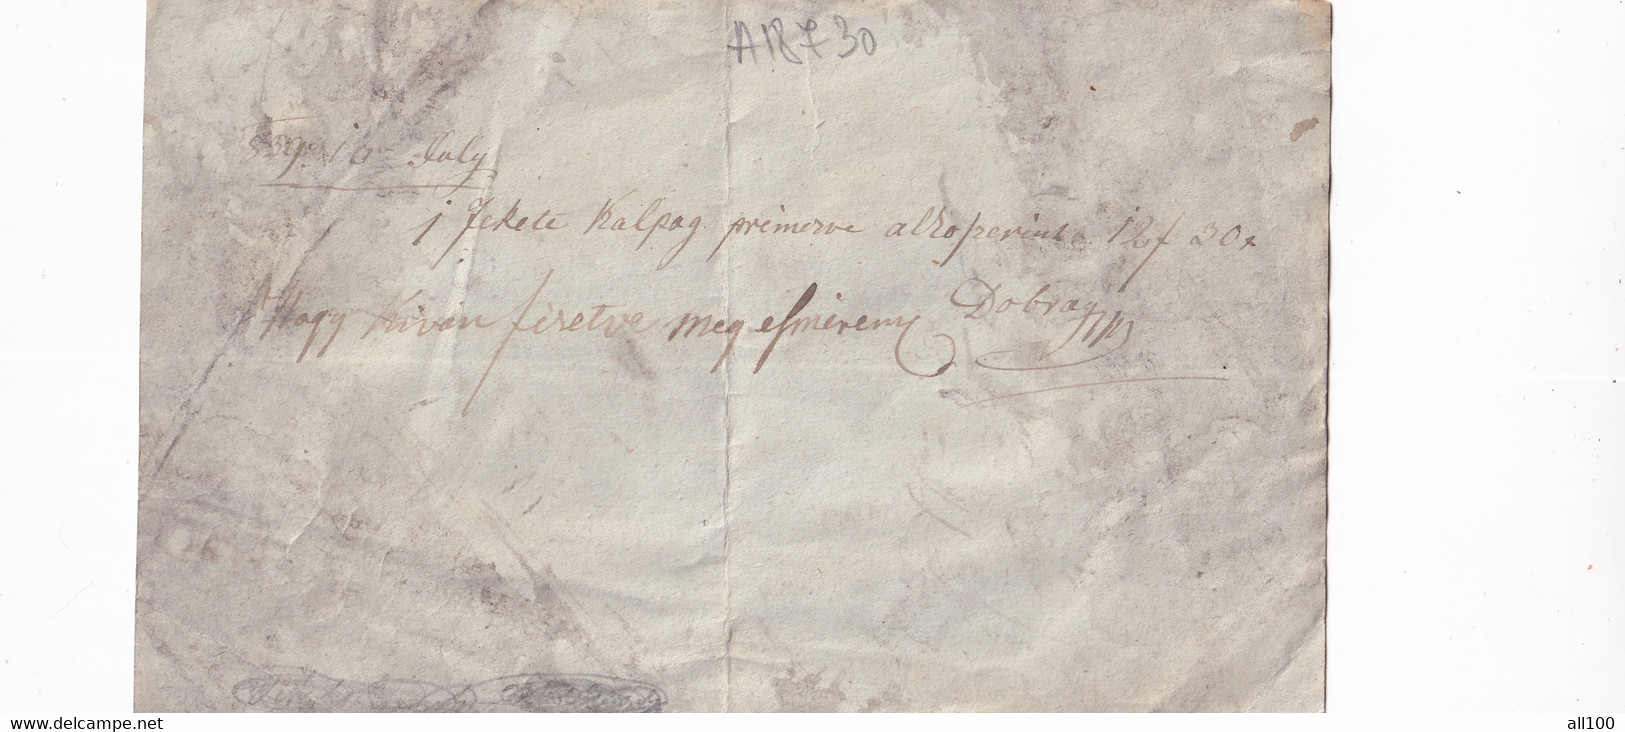 A18730
10 July
1 fekete Kalpag primerve alkoszerint 12f 30x
Hagy Kiván fizetve meg esmérem Dobray
www.delcampe.net
all100